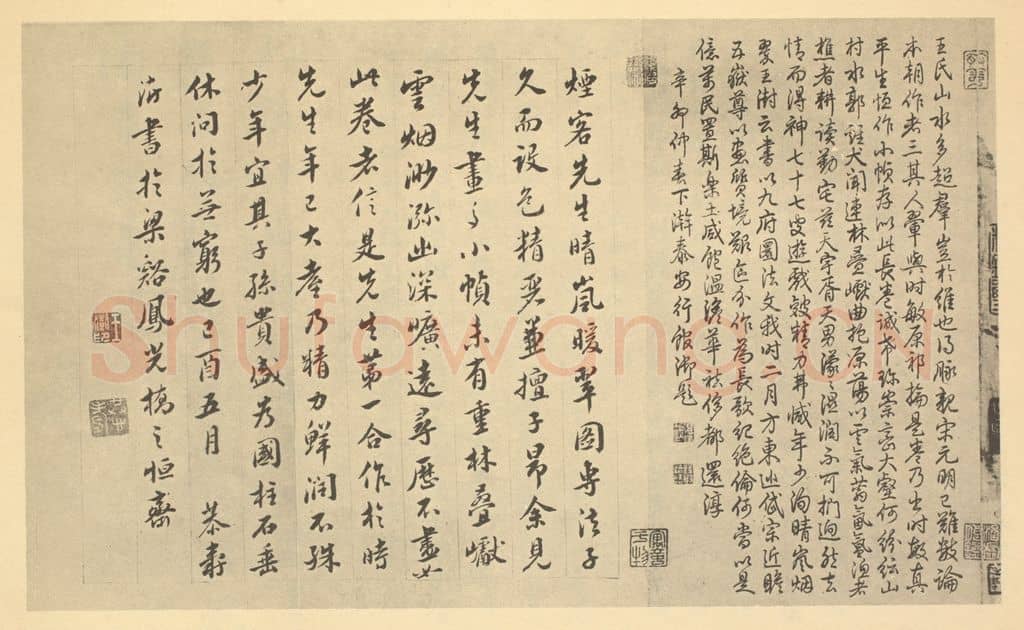 王氏山水多超羣豈於維也得脈親宋元明已難數論
本朝作者三其人翬與時敏原祁掄是卷乃出時敏真
平生恆作小幀存以此長卷誠希珍崇巒大壑何紛紜山
村水郭雞犬聞連林疊巘曲抱原蕩以雲氣蓊氤氳漁者
樵者耕讀勤宅茲大字胥天男濛濛溫潤不可捫迥殊去
情而得神七十七叟遊戲皴精力弗減年少洵晴嵐烟
翠王澍云書以九府圜法文我時二月方東巡岱宗近瞻
五嶽尊以畫質境艱區分作為長歌紀絕倫何當以是
億萬民置斯樂土咸飽溫濃華袪侈都還淳
辛卯仲春下澣泰安行館御題
煙客先生晴嵐暖翠圖專法子
久而設色精妍兼擅子昂余見
先生畫多小幀未有重林疊巘
雲烟渺瀰幽深曠遠尋歷不盡如
此卷者信是先生第一合作於時
先生年已大耋乃精力鮮潤不殊
少年宜其子孫貴盛為國柱石垂
休問於無窮也己酉五月 恭壽
澍書於梁谿鳳光橋之恒齋
Shufawang.CN